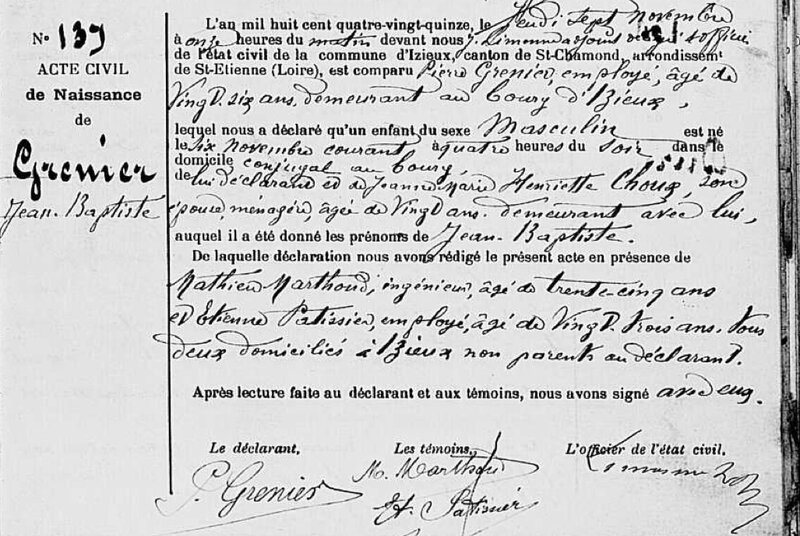 N° 139
ACTE CIVIL
de Naissance
de
Grenier
Jean-Baptiste
L'an mil huit cent quatre-vingt-quinze, le Jeudi sept Novembre
à onze heures du matin devant nous J. Limonne adjoint délégué officier
de l'état civil de la commune d'Izieux, canton de St-Chamond, arrondissemt
de St-Etienne (Loire), est comparu Pierre Grenier, employé, âgé de
Vingt-six ans, demeurant au bourg d'Izieux,
lequel nous a déclaré qu'un enfant du sexe Masculin est né
le six Novembre courant à quatre heures du soir dans le
domicile conjugal au bourg,
de lui déclarant et de Jeanne Marie Henriette Choux, son
épouse ménagère, âgée de Vingt ans. demeurant avec lui,
auquel il a été donné les prénoms de Jean-Baptiste.
De laquelle déclaration nous avons rédigé le présent acte en présence de
Mathieu Marthoud, ingénieur, âgé de trente-cinq ans
et Etienne Patissier, employé, âgé de Vingt-trois ans. tous
deux domiciliés à Izieux non parents au déclarant.
Après lecture faite au déclarant et aux témoins, nous avons signé avec eux.
Le déclarant, Les témoins, L'officier de l'état civil.
P. Grenier M. Marthoud
Et. Patissier